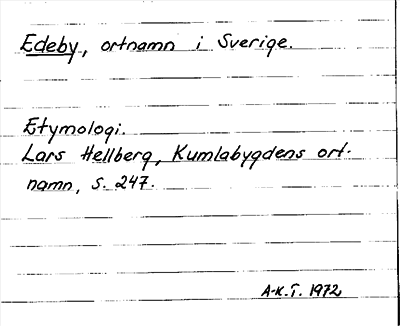 Edeby, ortnamn i Sverige.
Etymologi.
Lars Hellberg, Kumlabygdens ort-
namn, s. 247.
A-K.T. 1972